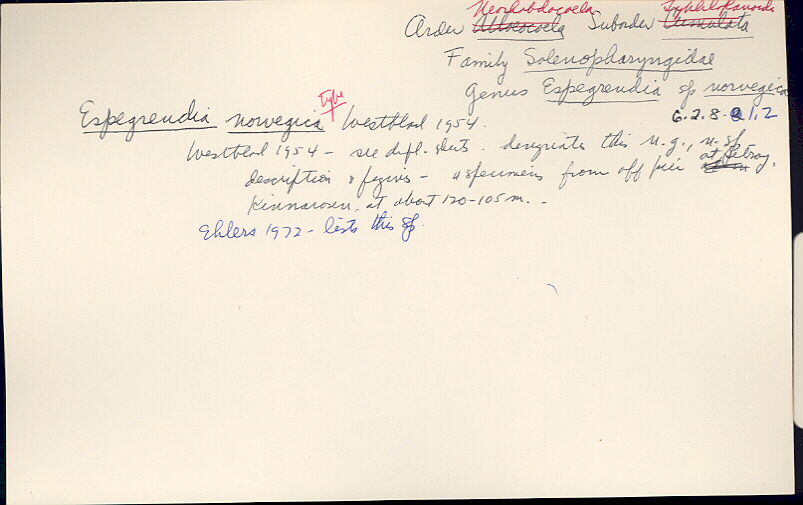 Neorhabdocoela Typhloplanoida
Order Allococoela Suborder Cumulata
Family Solenopharyngidae
Genus Espegrendia sp norvegica
6.2.8.21.2
Type
Espegrendia norvegica Westblad 1954.
Westblad 1954 - see dupl. sheets. designates this n.g., n. sp
description & figures - 4 specimens from off pier at Betroy,
Kinnarosen, at about 120-105 m. -
Ehlers 1972 - lists this sp.